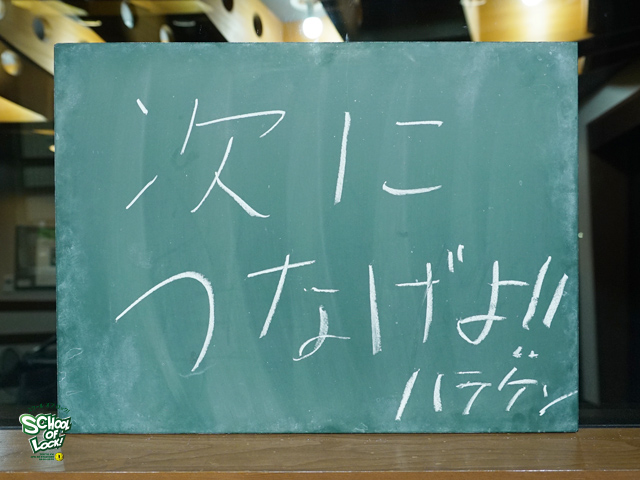 次に
つなげよ!!
ハラゲン
SCHOOL
OF
LOCK!